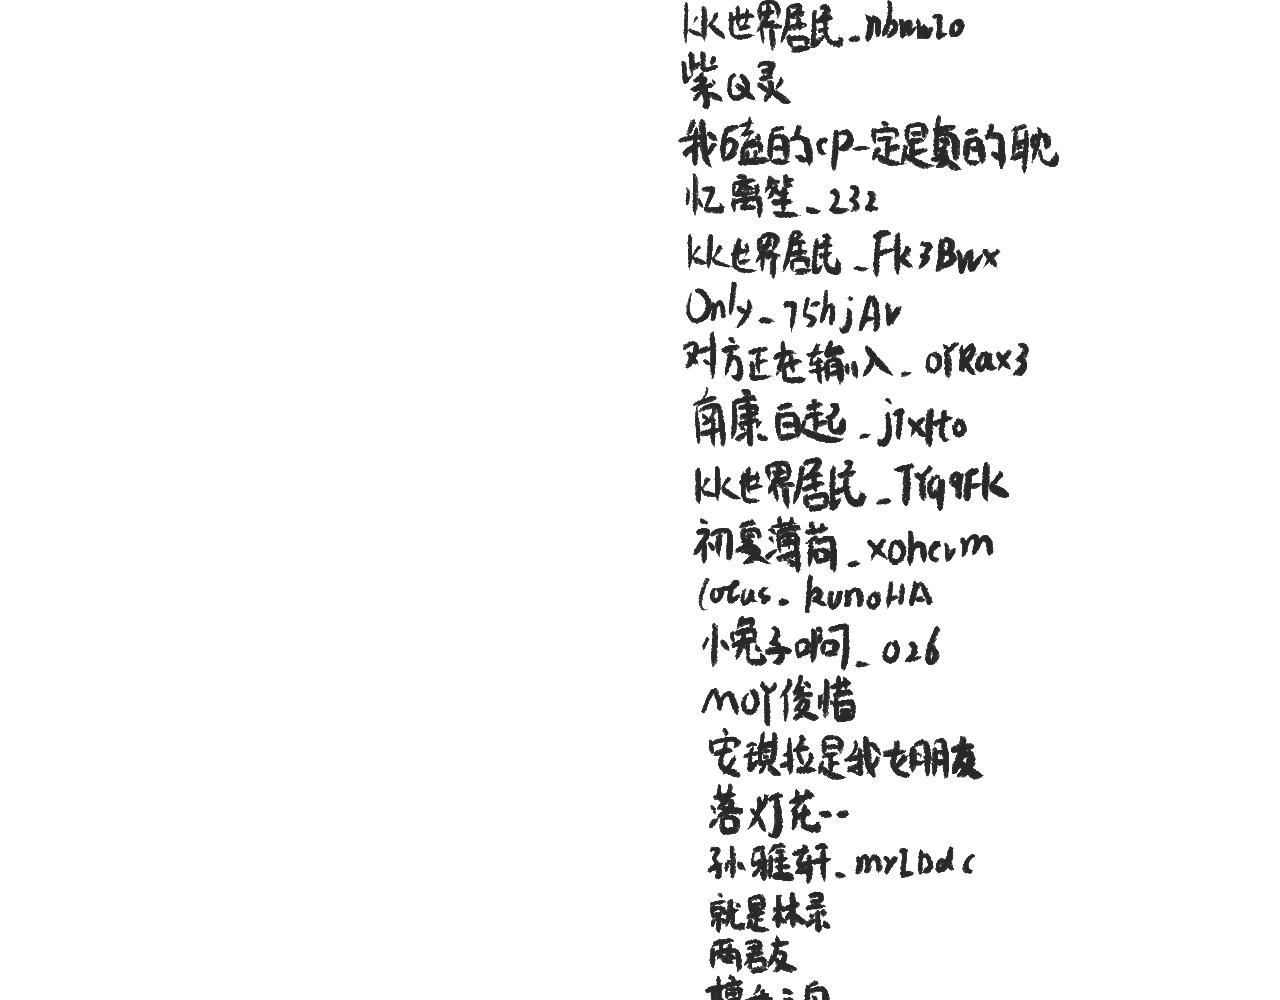 kk世界居民_nbnwzo
柴Q灵
我磕的cp一定是真的耽
忆离笙_232
kk世界居民_Fk3Bwx
Only_75hjAv
对方正在输入_oYRax3
南康白起_j1xHto
kk世界居民_TYq9Fk
初夏薄荷_xohcvm
locus_kunoHA
小兔子啊_026
MOY俊惜
安琪拉是我女朋友
落灯花--
孙雅轩_myIDdc
就是林录
两君友